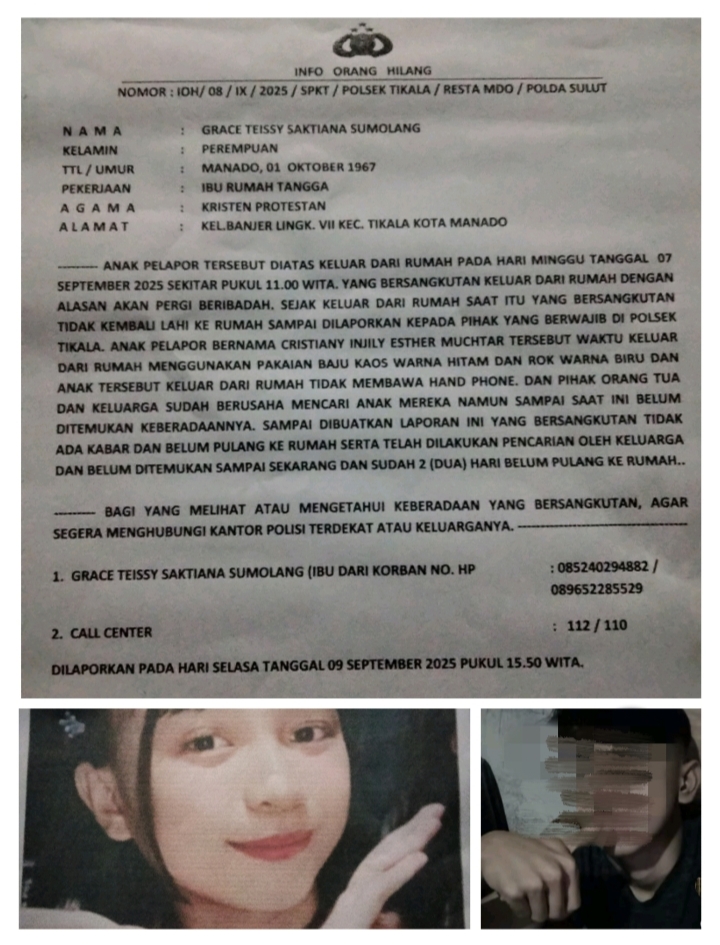 INFO ORANG HILANG
NOMOR : IOH/ 08 / IX / 2025 / SPKT / POLSEK TIKALA / RESTA MDO / POLDA SULUT
N A M A : GRACE TEISSY SAKTIANA SUMOLANG
KELAMIN : PEREMPUAN
TTL / UMUR : MANADO, 01 OKTOBER 1967
PEKERJAAN : IBU RUMAH TANGGA
A G A M A : KRISTEN PROTESTAN
A L A M A T : KEL.BANJER LINGK. VII KEC. TIKALA KOTA MANADO
--------- ANAK PELAPOR TERSEBUT DIATAS KELUAR DARI RUMAH PADA HARI MINGGU TANGGAL 07
SEPTEMBER 2025 SEKITAR PUKUL 11.00 WITA. YANG BERSANGKUTAN KELUAR DARI RUMAH DENGAN
ALASAN AKAN PERGI BERIBADAH. SEJAK KELUAR DARI RUMAH SAAT ITU YANG BERSANGKUTAN
TIDAK KEMBALI LAHI KE RUMAH SAMPAI DILAPORKAN KEPADA PIHAK YANG BERWAJIB DI POLSEK
TIKALA. ANAK PELAPOR BERNAMA CRISTIANY INJILY ESTHER MUCHTAR TERSEBUT WAKTU KELUAR
DARI RUMAH MENGGUNAKAN PAKAIAN BAJU KAOS WARNA HITAM DAN ROK WARNA BIRU DAN
ANAK TERSEBUT KELUAR DARI RUMAH TIDAK MEMBAWA HAND PHONE. DAN PIHAK ORANG TUA
DAN KELUARGA SUDAH BERUSAHA MENCARI ANAK MEREKA NAMUN SAMPAI SAAT INI BELUM
DITEMUKAN KEBERADAANNYA. SAMPAI DIBUATKAN LAPORAN INI YANG BERSANGKUTAN TIDAK
ADA KABAR DAN BELUM PULANG KE RUMAH SERTA TELAH DILAKUKAN PENCARIAN OLEH KELUARGA
DAN BELUM DITEMUKAN SAMPAI SEKARANG DAN SUDAH 2 (DUA) HARI BELUM PULANG KE RUMAH..
--------- BAGI YANG MELIHAT ATAU MENGETAHUI KEBERADAAN YANG BERSANGKUTAN, AGAR
SEGERA MENGHUBUNGI KANTOR POLISI TERDEKAT ATAU KELUARGANYA. ----------------------
1. GRACE TEISSY SAKTIANA SUMOLANG (IBU DARI KORBAN NO. HP : 085240294882 /
089652285529
2. CALL CENTER : 112 / 110
DILAPORKAN PADA HARI SELASA TANGGAL 09 SEPTEMBER 2025 PUKUL 15.50 WITA.